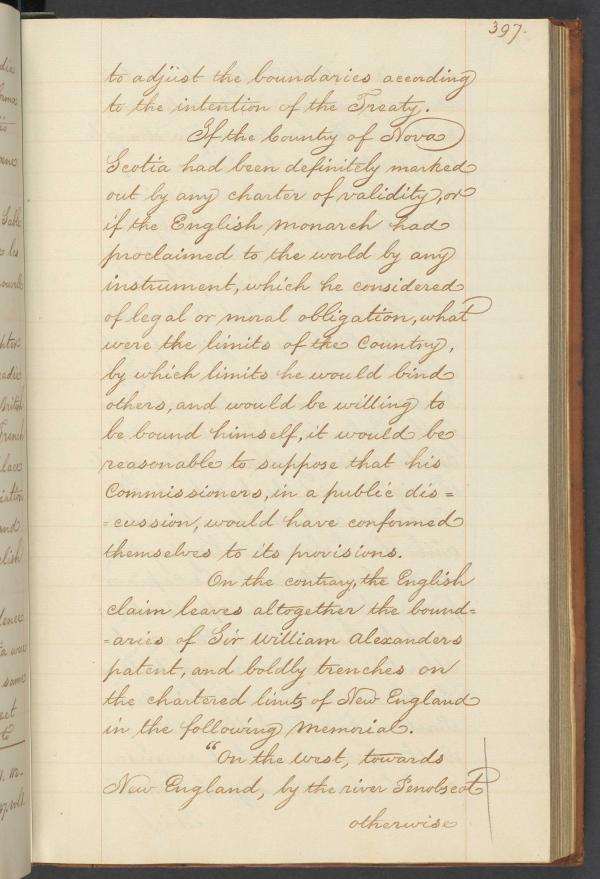 397.
to adjust the boundaries according
to the intention of the Treaty.
If the Country of Nova
Scotia had been definitely marked
out by any charter of validity, or
if the English monarch had
proclaimed to the world by any
instrument, which he considered
of legal or moral obligation, what
were the limits of the Country,
by which limits he would bind
others, and would be willing to
be bound himself, it would be
reasonable to suppose that his
Commissioners, in a public dis=
=cussion, would have conformed
themselves to its provisions.
On the contrary, the English
claim leaves altogether the bound=
=aries of Sir William Alexanders
patent, and boldly trenches on
the chartered limits of New England
in the following memorial.
"On the west, towards
New England, by the river Penobscot
otherwise